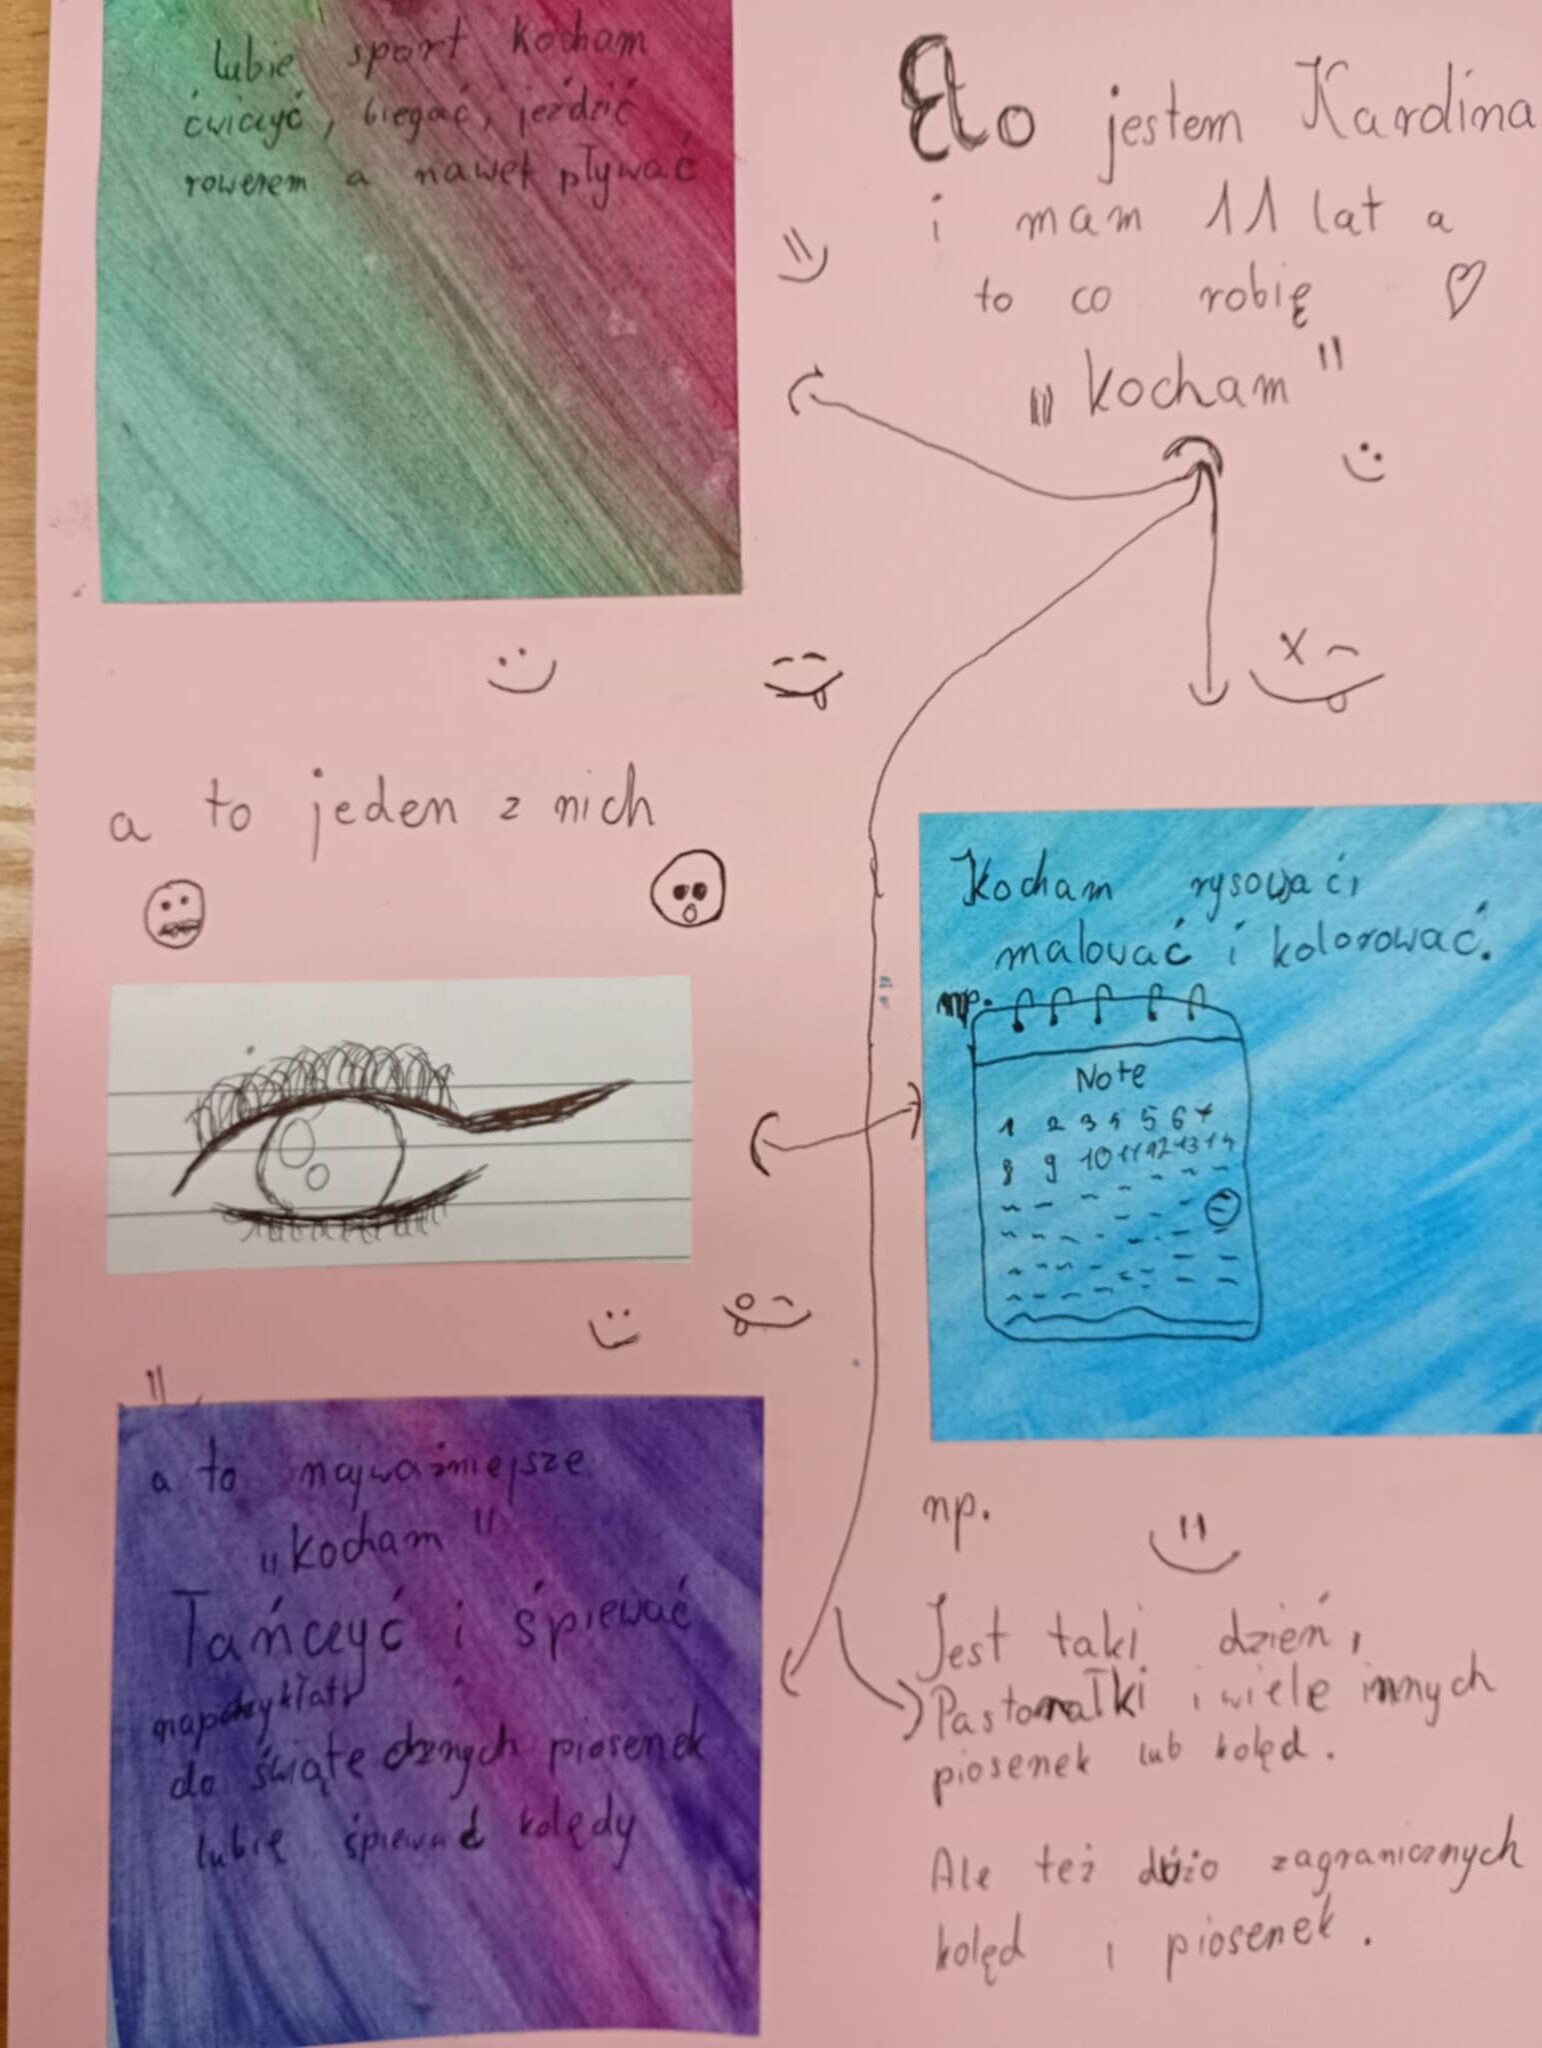 Elo jestem Karolina
i mam 11 lat a
to co robię
„kocham"
lubię sport kocham
ćwiczyć, biegać, jeździć
rowerem a nawet pływać
a to jeden z nich
Kocham rysować,
malować i kolorować.
np.
Note
1 2 3 4 5 6 7
8 9 10 11 12 13 14
a to najważniejsze
„kocham"
Tańczyć i śpiewać
do świątecznych piosenek
lubię śpiewać kolędy
np.
Jest taki dzień,
Pastorałki i wiele innych
piosenek lub kolęd.
Ale też dużo zagranicznych
kolęd i piosenek.